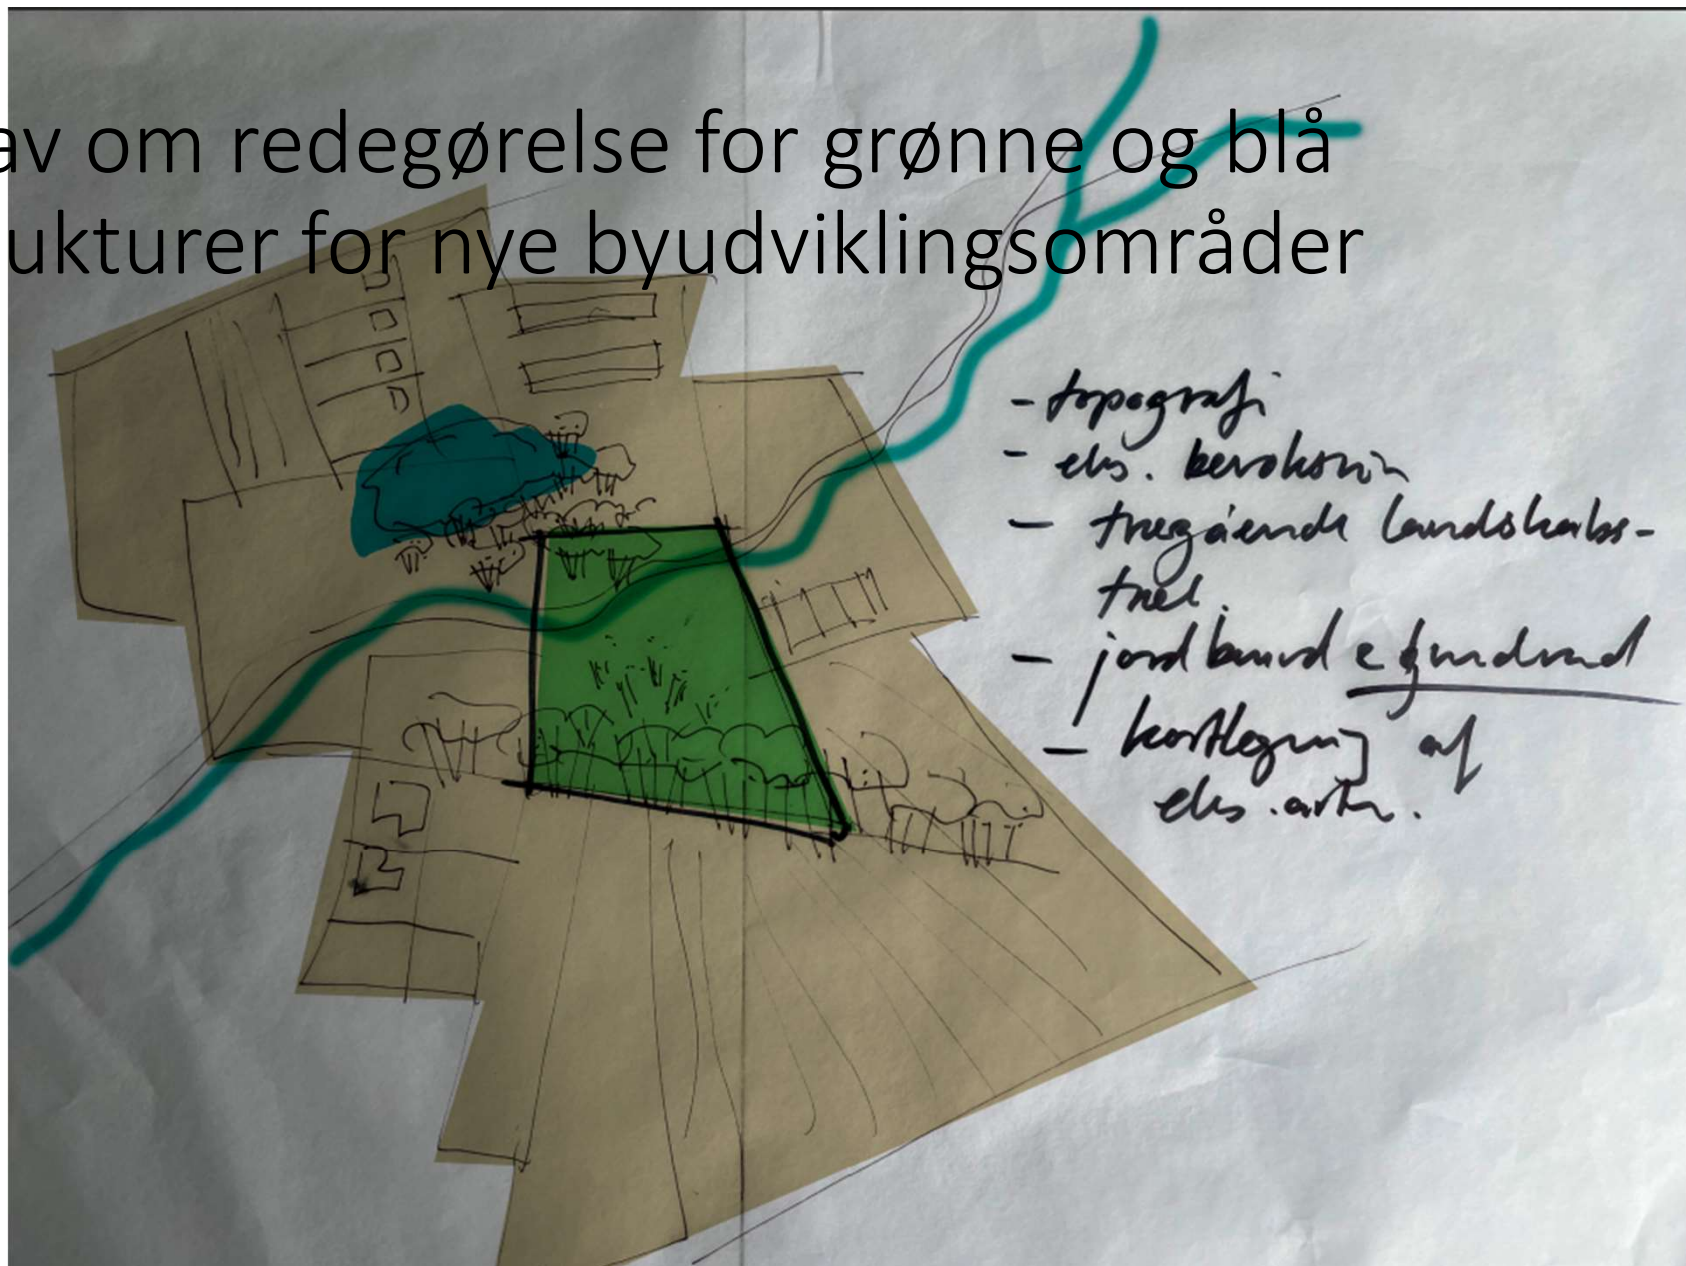 av om redegørelse for grønne og blå
ukturer for nye byudviklingsområder
- topografi
- eks. bevoksnin
- tregående landskabs-
træk.
- jordbund & grundvand
- kortlegning af
eks. arter.